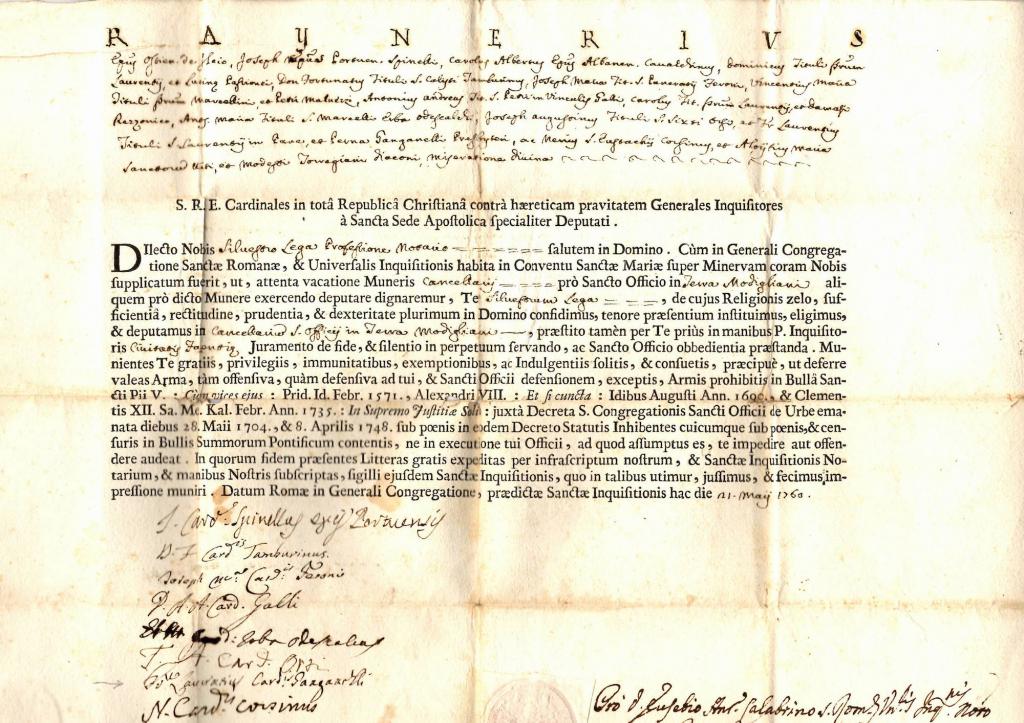 RAYNERIVS
Epūs Ostien. de Ilcio, Joseph Epūs Portuen. Spinelli, Carolus Albertus Epūs Albanen. Cavalchinus, Dominicus Tituli
Laurentij, et Lucina Passionei, Don Fortunatus Tituli S. Calysti Tamburinus, Joseph Maria Tit. S. Pancratij Feroni, Vincentius Maria
Tituli Marcellini, et Petri Malvezzi, Antonius Andreas Tit. S. Petri in Vinculis Galli, Carolus Tit. Laurentij, et Damasi
Rezzonico, Ang. Maria Tituli S. Marcelli Erba Odescalchi, Joseph Augustinus Tituli S. Sixti Orsi, et Fr. Laurentius
Tituli S. Laurentij in Pane, et Perna Ganganelli Presbyteri, ac Nerius S. Eustachij Corsinus, et Aloysius Maria
Sanctorum Viti, et Modesti Torregiani Diaconi, Miseratione divina
S. R. E. Cardinales in totâ Republicâ Christianâ contrà hæreticam pravitatem Generales Inquisitores
à Sancta Sede Apostolica specialiter Deputati.
DIlecto Nobis Silvestro Lega Professione Notario salutem in Domino. Cùm in Generali Congrega-
tione Sanctæ Romanæ, & Universalis Inquisitionis habita in Conventu Sanctæ Mariæ super Minervam coram Nobis
supplicatum fuerit, ut, attenta vacatione Muneris Cancellarij prò Sancto Officio in Terra Modigliani ali-
quem prò dicto Munere exercendo deputare dignaremur, Te Silvestrum Lega, de cujus Religionis zelo, suf-
ficientiâ, rectitudine, prudentia, & dexteritate plurimum in Domino confidimus, tenore præsentium instituimus, eligimus,
& deputamus in Cancellarium S. Officij in Terra Modigliani, præstito tamèn per Te priùs in manibus P. Inquisito-
ris Civitatis Faventiæ Juramento de fide, & silentio in perpetuum servando, ac Sancto Officio obbedientia præstanda. Mu-
nientes Te gratiis, privilegiis, immunitatibus, exemptionibus, ac Indulgentiis solitis, & consuetis, præcipuè, ut deferre
valeas Arma, tàm offensiva, quàm defensiva ad tui, & Sancti Officii defensionem, exceptis, Armis prohibitis in Bullâ San-
cti Pii V. : Cùm vices ejus : Prid. Id. Febr. 1571., Alexandri VIII. : Et si cuncta : Idibus Augusti Ann. 1690., & Clemen-
tis XII. Sa. Me. Kal. Febr. Ann. 1735. : In Supremo Justitiæ Solio : juxtà Decreta S. Congregationis Sancti Officii de Urbe ema-
nata diebus 28. Maii 1704., & 8. Aprilis 1748. sub pœnis in eodem Decreto Statutis Inhibentes cuicumque sub pœnis, & cen-
suris in Bullis Summorum Pontificum contentis, ne in executione tui Officii, ad quod assumptus es, te impedire aut offen-
dere audeat. In quorum fidem præsentes Litteras gratis expeditas per infrascriptum nostrum, & Sanctæ Inquisitionis No-
tarium, & manibus Nostris subscriptas, sigilli ejusdem Sanctæ Inquisitionis, quo in talibus utimur, jussimus, & fecimus im-
pressione muniri. Datum Romæ in Generali Congregatione, prædictæ Sanctæ Inquisitionis hac die 21. Maij 1760.
J. Card. Spinellus Epūs Portuensis
D. F. Cardis Tamburinus.
Joseph Ma. Cardis Feronis
D. A. A. Card. Galli
Card: Erba Odescalcus
F. A. Card. Orsi
Fr. Laurentius Cardis Ganganelli
N. Cardis Corsinus
Pro D. Eusebio Ant. Calabrino S. Rom. & Vnlis Inqnis Noto